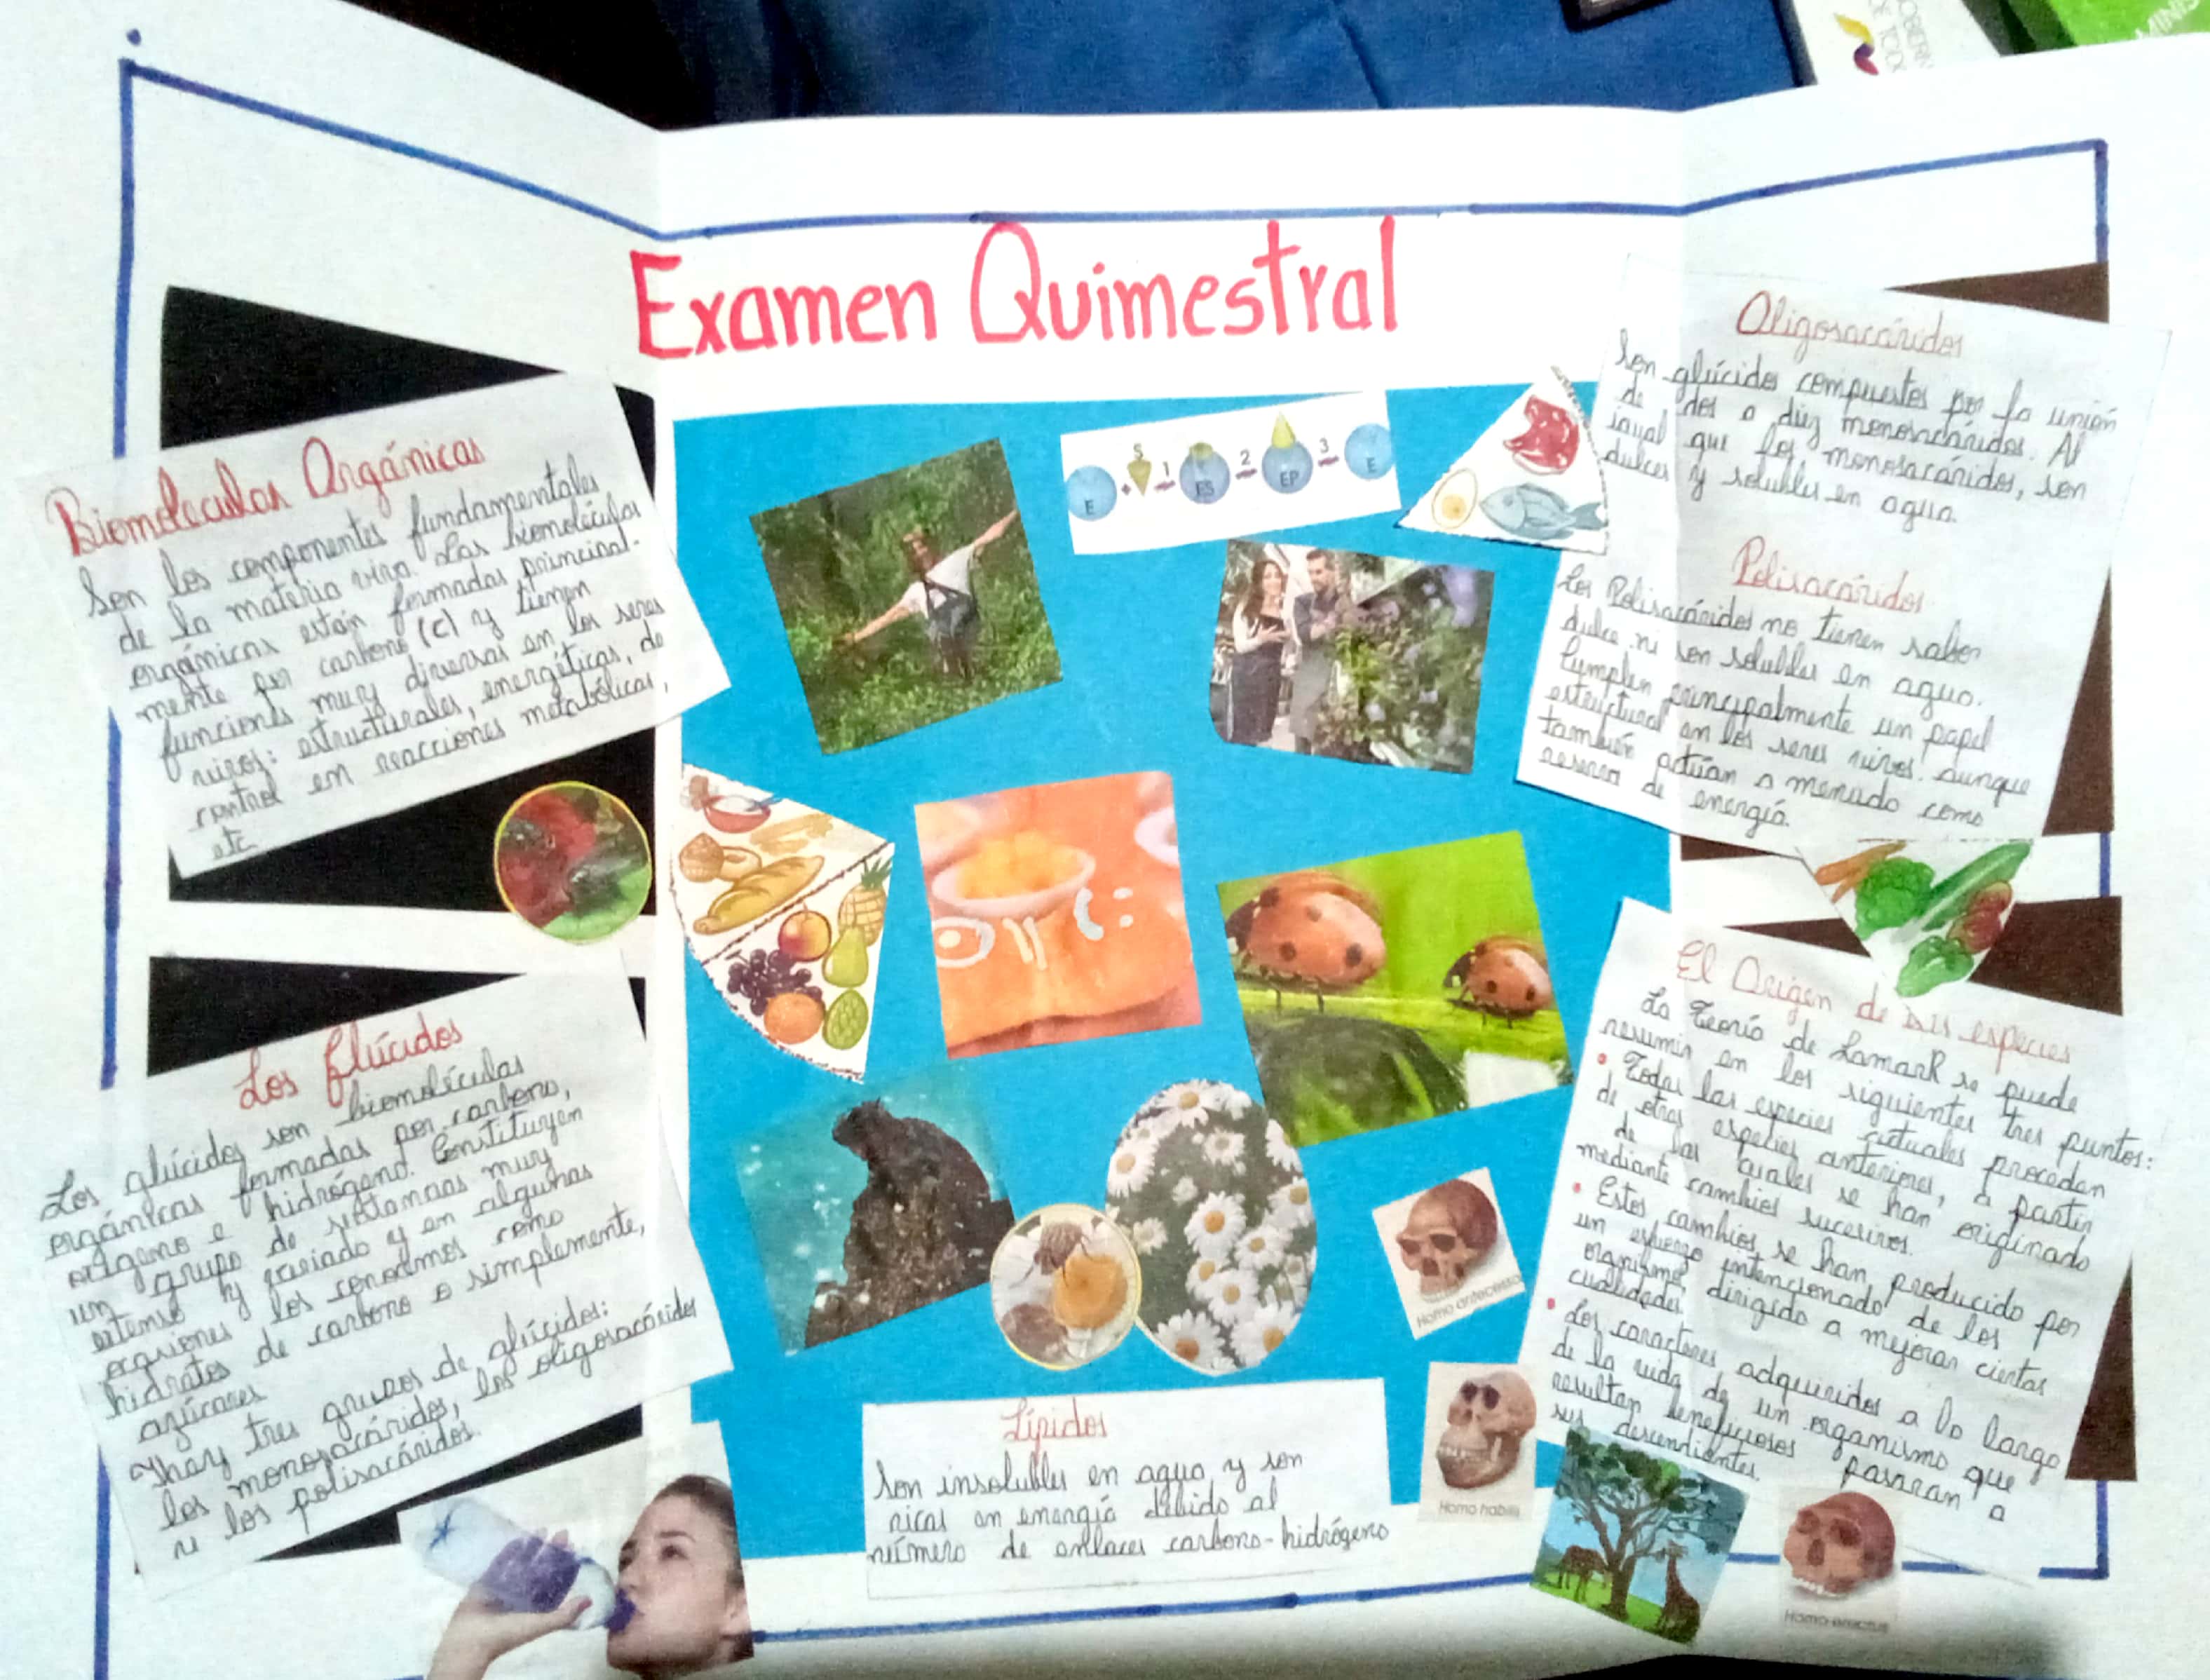 Examen Quimestral
Biomoleculas Orgánicas
Son los componentes fundamentales
de la materia viva. Las biomoléculas
orgánicas están formadas principal-
mente por carbono (c) y tienen
funciones muy diversas en los seres
vivos: estructurales, energéticas, de
control en reacciones metabólicas,
etc
Los Glúcidos
Los glúcidos son biomoléculas
orgánicas formadas por carbono,
oxígeno e hidrógeno. Constituyen
un grupo de sustancias muy
extenso y variado y en algunas
ocasiones los conocemos como
hidratos de carbono o simplemente,
azúcares
Hay tres grupos de glúcidos:
los monosacáridos, los oligosacáridos
y los polisacáridos.
E + S 1 ES 2 EP 3 E
Homo antecessor
Homo habilis
Lípidos
Son insolubles en agua y son
ricas en energía debido al
número de enlaces carbono-hidrógeno
Oligosacáridos
Son glúcidos compuestos por la unión
de dos a diez monosacáridos. Al
igual que los monosacáridos, son
dulces y solubles en agua.
Polisacáridos
Los Polisacáridos no tienen sabor
dulce ni son solubles en agua.
Cumplen principalmente un papel
estructural en los seres vivos. aunque
también actúan a menudo como
reserva de energía.
El Origen de las especies
La Teoría de LamarK se puede
resumir en los siguientes tres puntos:
• Todas las especies actuales proceden
de otras especies anteriores, a partir
de las cuales se han originado
mediante cambios sucesivos.
• Estos cambios se han producido por
un esfuerzo intencionado de los
organismos dirigido a mejorar ciertas
cualidades
• Los caracteres adquiridos a lo largo
de la vida de un organismo que
resultan beneficiosos pasaran a
sus descendientes.
Homo erectus